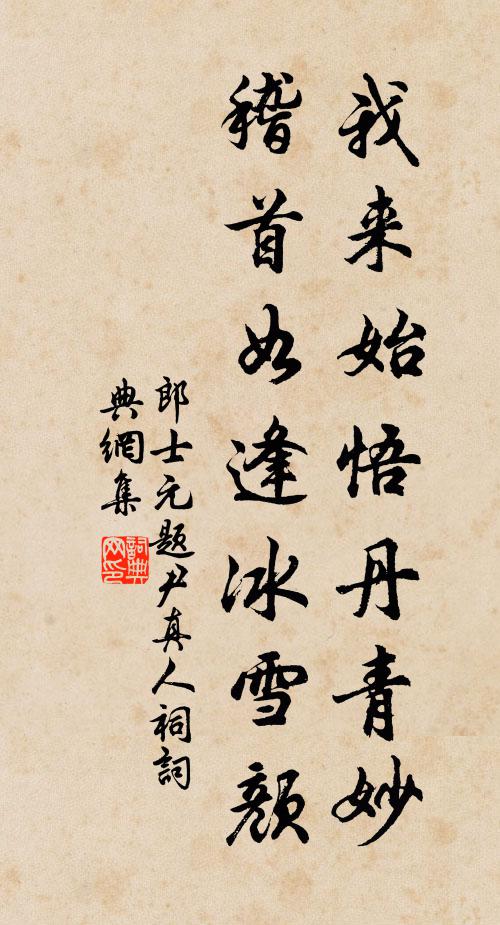 我来始悟丹青妙
稽首如逢冰雪顔
郎士元题尹真人祠詞
典網集
詞典
网印